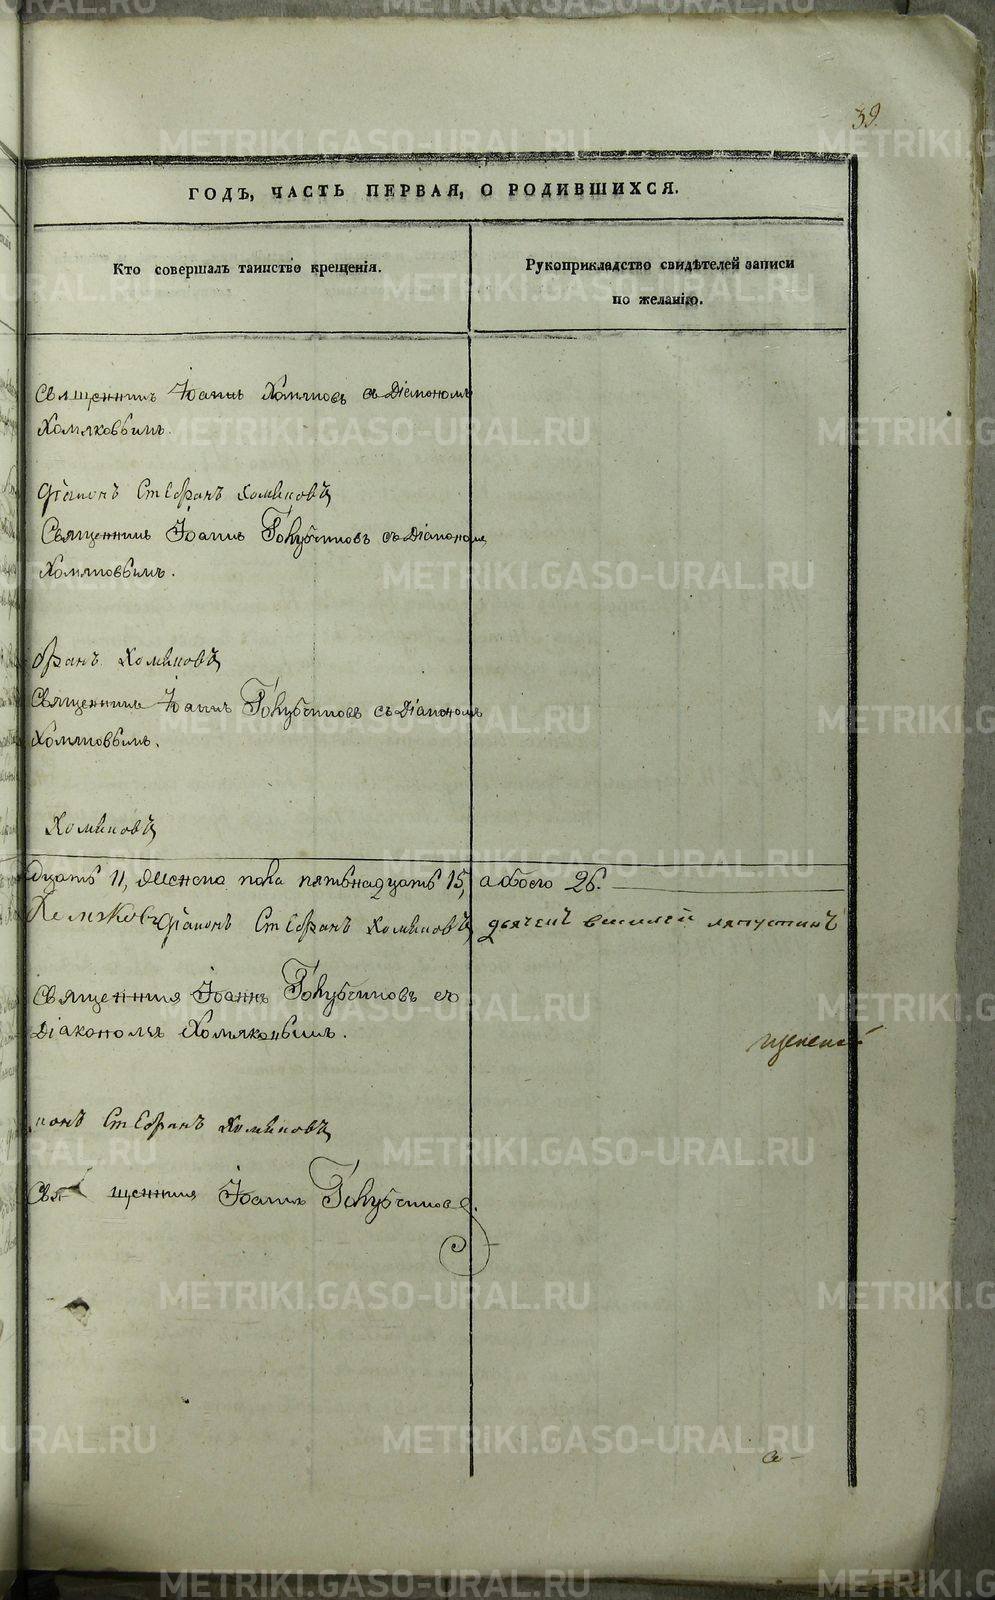 39.
ГОДЪ, ЧАСТЬ ПЕРВАЯ, О РОДИВШИХСЯ.
Кто совершалъ таинство крещенія.
Рукоприкладство свидѣтелей записи
по желанію.
Священникъ Іоаннъ съ Діакономъ
Хомяковымъ.
Діаконъ Стефанъ Хомяковъ
Священникъ Іоаннъ Голубчиковъ съ Діакономъ
Хомяковымъ.
фанъ Хомяковъ
Священникъ Іоаннъ Голубчиковъ съ Діакономъ
Хомяковымъ.
Хомяковъ
дцать 11, женска пола пятьнадцать 15, а обоего 26.
Хомяковъ Діаконъ Стефанъ Хомяковъ дьячекъ василей ляпустинъ
Священникъ Іоаннъ Голубчиковъ съ
Діакономъ Хомяковымъ.
конъ Стефанъ Хомяковъ
Священникъ Іоаннъ Голубчиковъ.
METRIKI.GASO-URAL.RU